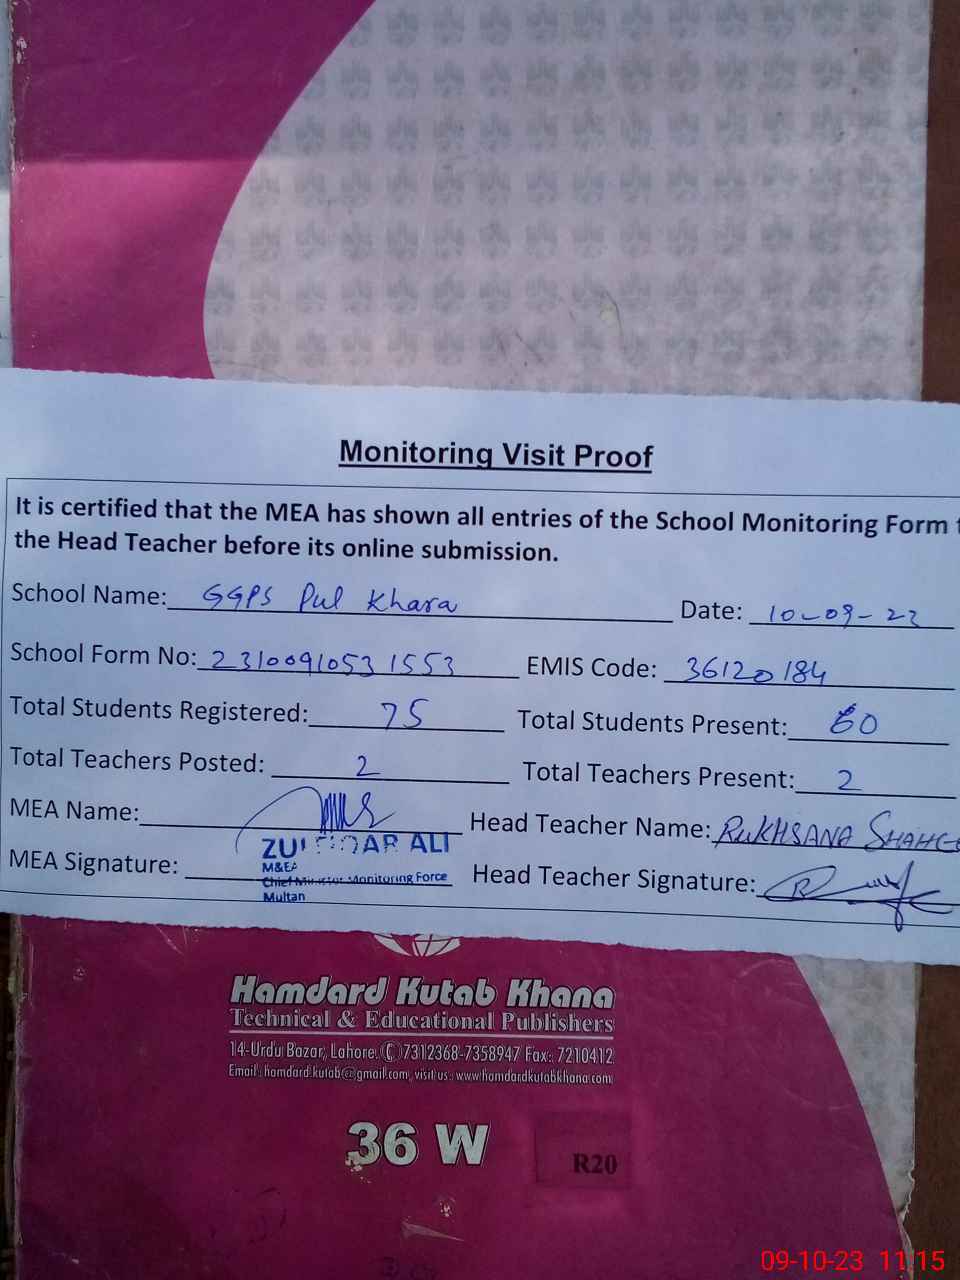 Monitoring Visit Proof
It is certified that the MEA has shown all entries of the School Monitoring Form
the Head Teacher before its online submission.
School Name: GGPS Pul Khara Date: 10-09-23
School Form No: 23100910531553 EMIS Code: 36120184
Total Students Registered: 75 Total Students Present: 60
Total Teachers Posted: 2 Total Teachers Present: 2
MEA Name: Head Teacher Name: RUKHSANA
ALI
M&EA
MEA Signature: Head Teacher Signature:
Chief Minister Monitoring Force
Multan
Hamdard Kutab Khana
Technical & Educational Publishers
14-Urdu Bazar, Lahore. 7312368-7358947 Fax: 7210412
Email: hamdard.kutab@gmail.com, visit us: www.hamdardkutabkhana.com
36 W
R20
09-10-23 11 15